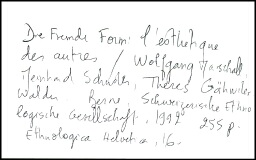 Die Fremde Form: l'esthétique
des autres / Wolfgang Marschall,
Meinhard Schuster, Thérès Gähwiler-
Walder. Berne, Schweizerische Ethno
logische Gesellschaft, 1992 255 p.
Ethnologica Helvetica, 16.